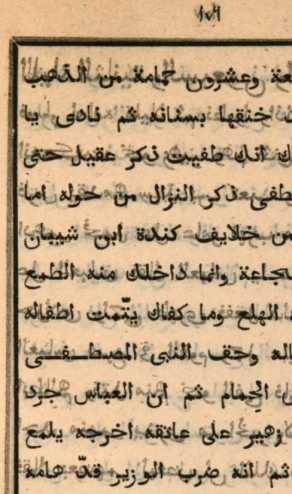 ١٥٦
وعشرون حمامة من الذهب
خنقها بسنانه ثم نادى يا
انك طفيت ذكر عقيل حتى
ذكر النزال من حوله اما
من خلايف كندة ابن شيبان
وانما داخلك منه الطمع
الهلع وما كفاك يتّمت اطفاله
وحق النبى المصطفى
الحِمام ثم ان العباس جرد
زهير على عاتقه اخرجه يلمع
ثم انه ضرب الوزير قدّ هامه